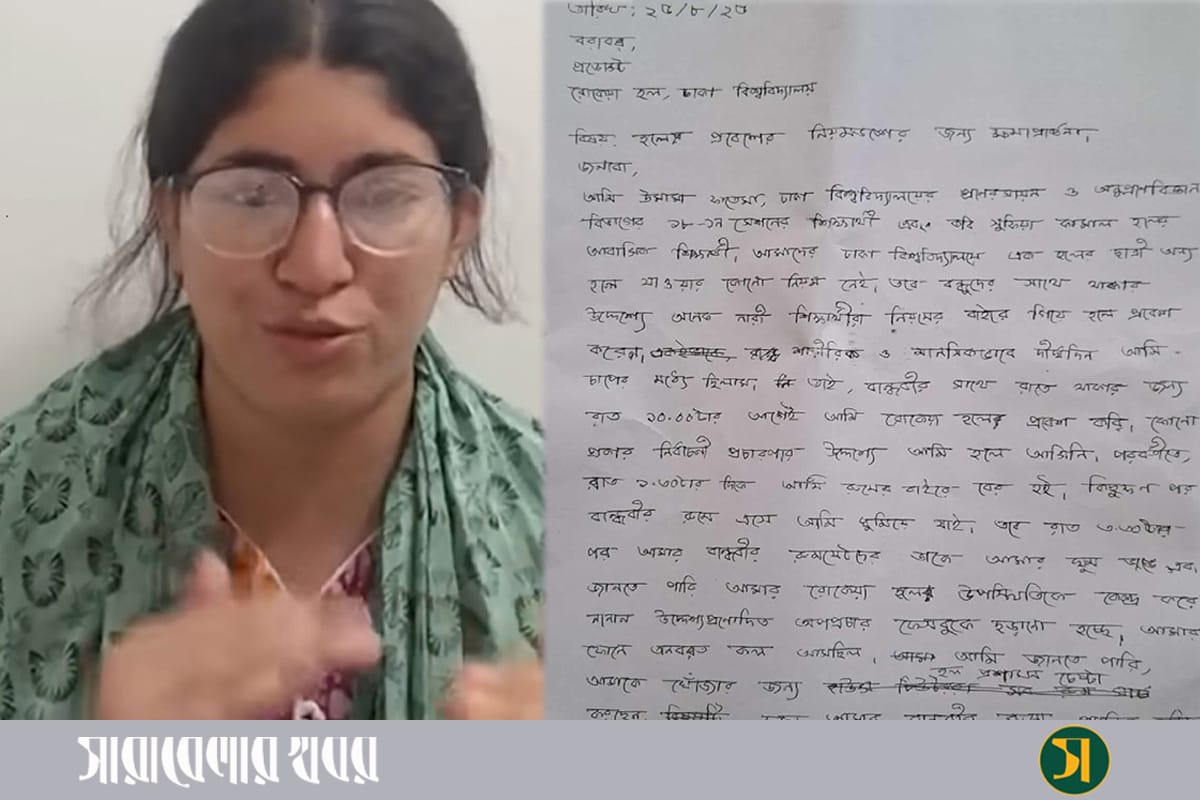 তারিখ: ২৫/৮/২৫
বরাবর,
প্রভোস্ট
রোকেয়া হল, ঢাকা বিশ্ববিদ্যালয়
বিষয়: হলে প্রবেশের নিয়মভঙ্গের জন্য ক্ষমাপ্রার্থনা।
জনাবা,
আমি উমামা ফাতেমা, ঢাকা বিশ্ববিদ্যালয়ের প্রাণরসায়ন ও অনুপ্রাণবিজ্ঞান
বিভাগের ১৮-১৯ সেশনের শিক্ষার্থী এবং কবি সুফিয়া কামাল হলের
আবাসিক শিক্ষার্থী। আমাদের ঢাকা বিশ্ববিদ্যালয়ে এক হলের ছাত্রী অন্য
হলে যাওয়ার কোনো নিয়ম নেই। তবে বন্ধুদের সাথে থাকার
উদ্দেশ্যে অনেক নারী শিক্ষার্থীরা নিয়মের বাইরে গিয়ে হলে প্রবেশ
করেন। শারীরিক ও মানসিকভাবে দীর্ঘদিন আমি
চাপের মধ্যে ছিলাম। তাই, বান্ধবীর সাথে রাতে থাকার জন্য
রাত ১০.০০টার আগেই আমি রোকেয়া হলে প্রবেশ করি। কোনো
প্রকার নির্বাচনী প্রচারণার উদ্দেশ্যে আমি হলে আসিনি। পরবর্তীতে,
রাত ১.৩০টার দিকে আমি রুমের বাইরে বের হই। কিছুক্ষণ পর
বান্ধবীর রুমে এসে আমি ঘুমিয়ে যাই। তবে রাত ৩.৩০টার
পর আমার বান্ধবীর রুমমেটের ডাকে আমার ঘুম ভাঙে এবং
জানতে পারি আমার রোকেয়া হলে উপস্থিতিকে কেন্দ্র করে
নানান উদ্দেশ্যপ্রণোদিত অপপ্রচার ফেসবুকে ছড়ানো হচ্ছে। আমার
ফোনে অনবরত কল আসছিল। আমি জানতে পারি,
আমাকে খোঁজার জন্য হল প্রশাসন চেষ্টা
করছেন
সারাবেলার খবর
স